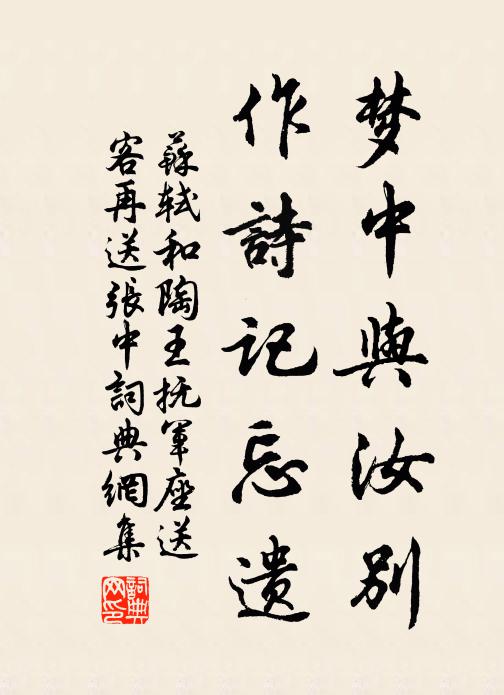 梦中與汝别
作詩記忘遗
蘇轼和陶王抚軍座送
客再送張中詞典網集
詞典网印